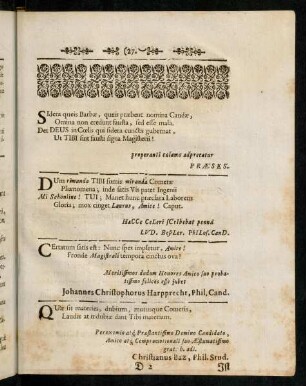 (27.)
Sidera queis Barbæ, queis præbent nomina Caudæ,
Omina non credunt fausta, sed esse mala.
Det DEUS in Cœlis qui sidera cuncta gubernat,
Ut TIBI sint fausta signa Magisterii!
properanti calamo adprecatur
PRÆSES.
DUm rimanda TIBI sumis miranda Cometæ
Phænomena, inde satis Vis patet Ingenii
Mi Schonline! TUI; Manet hunc præclara Laboris
Gloria, mox cinget Laurus, Amice! Caput.
LVD.
CErtatum satis est: Nunc spes impletur, Amice!
Fronde Magistrali tempora cinctus ova!
Meritissimos dudum Honores Amico suo proba-
tissimo felices esse jubet
Johannes Christophorus Harpprecht, Phil. Cand.
materiem, dubium, motumque Cometæ,
Laudis at indubiæ dant Tibi materiam.
Perennem atq; Præstantissimo Domino Candidato,
Amico atq; Compromotionali suo
grat. b. adj.
Christianus Baz, Phil. Stud.
D 2